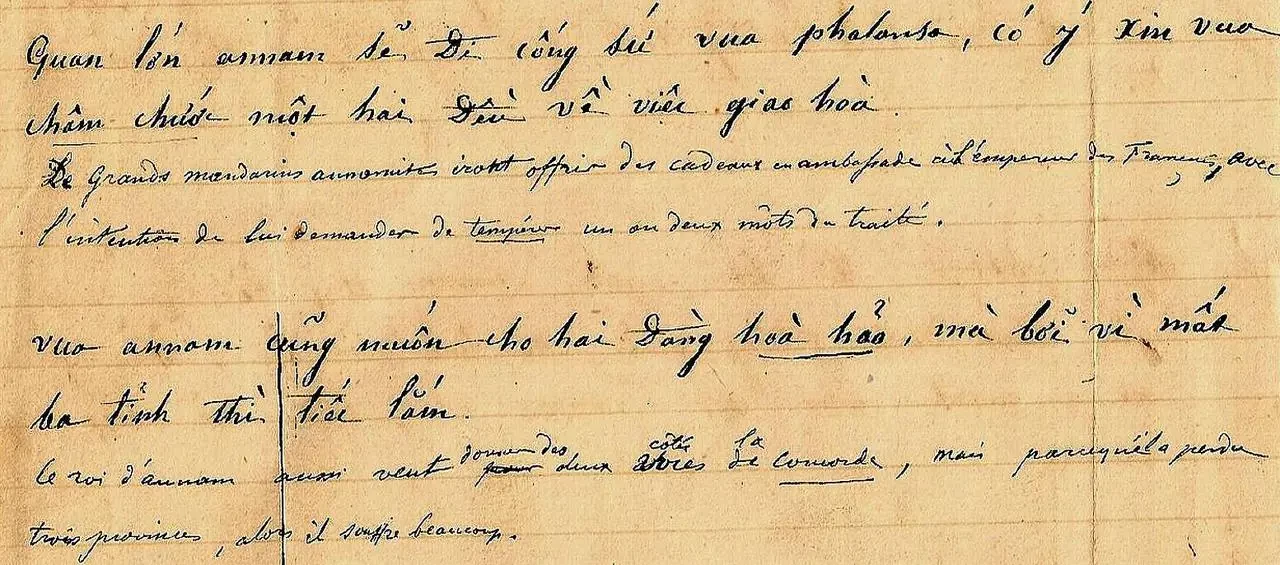 Quan lớn annam sẽ Đi cống sứ vua phalansa, có ý xin vua
châm chước một hai Đều về việc giao hoà
De Grands mandarins annamites iront offrir des cadeaux en ambassade à l'empereur des Français, avec
l'intention de lui demander de tempérer un ou deux mots du traité.
vua annam cũng muốn cho hai Đàng hoà hảo, mà bởi vì mất
ba tỉnh thì tiếc lắm.
le roi d'annam aussi veut donner des deux côtés la concorde, mais parcequ'il a perdu
trois provinces, alors il souffre beaucoup.